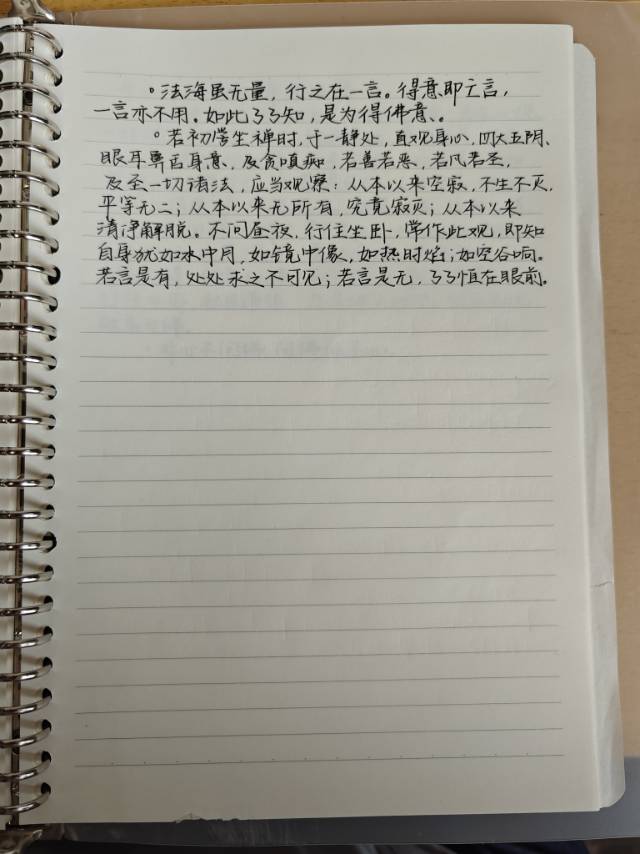 。法海虽无量，行之在一言。得意即亡言，
一言亦不用。如此了了知，是为得佛意、。
。若初学坐禅时，于一静处，直观身心，四大五阴、
眼耳鼻舌身意，及贪嗔痴，若善若恶，若凡若圣，
及至一切诸法，应当观察：从本以来空寂，不生不灭，
平等无二；从本以来无所有，究竟寂灭；从本以来
清净解脱。不问昼夜，行住坐卧，常作此观，即知
自身犹如水中月，如镜中像，如热时焰；如空谷响。
若言是有，处处求之不可见；若言是无，了了恒在眼前。